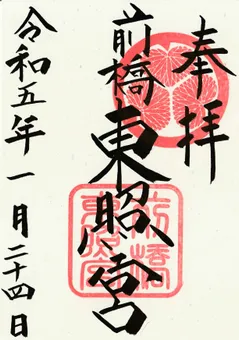 奉拝
前橋東照宮
令和五年一月二十四日
前橋
東照宮